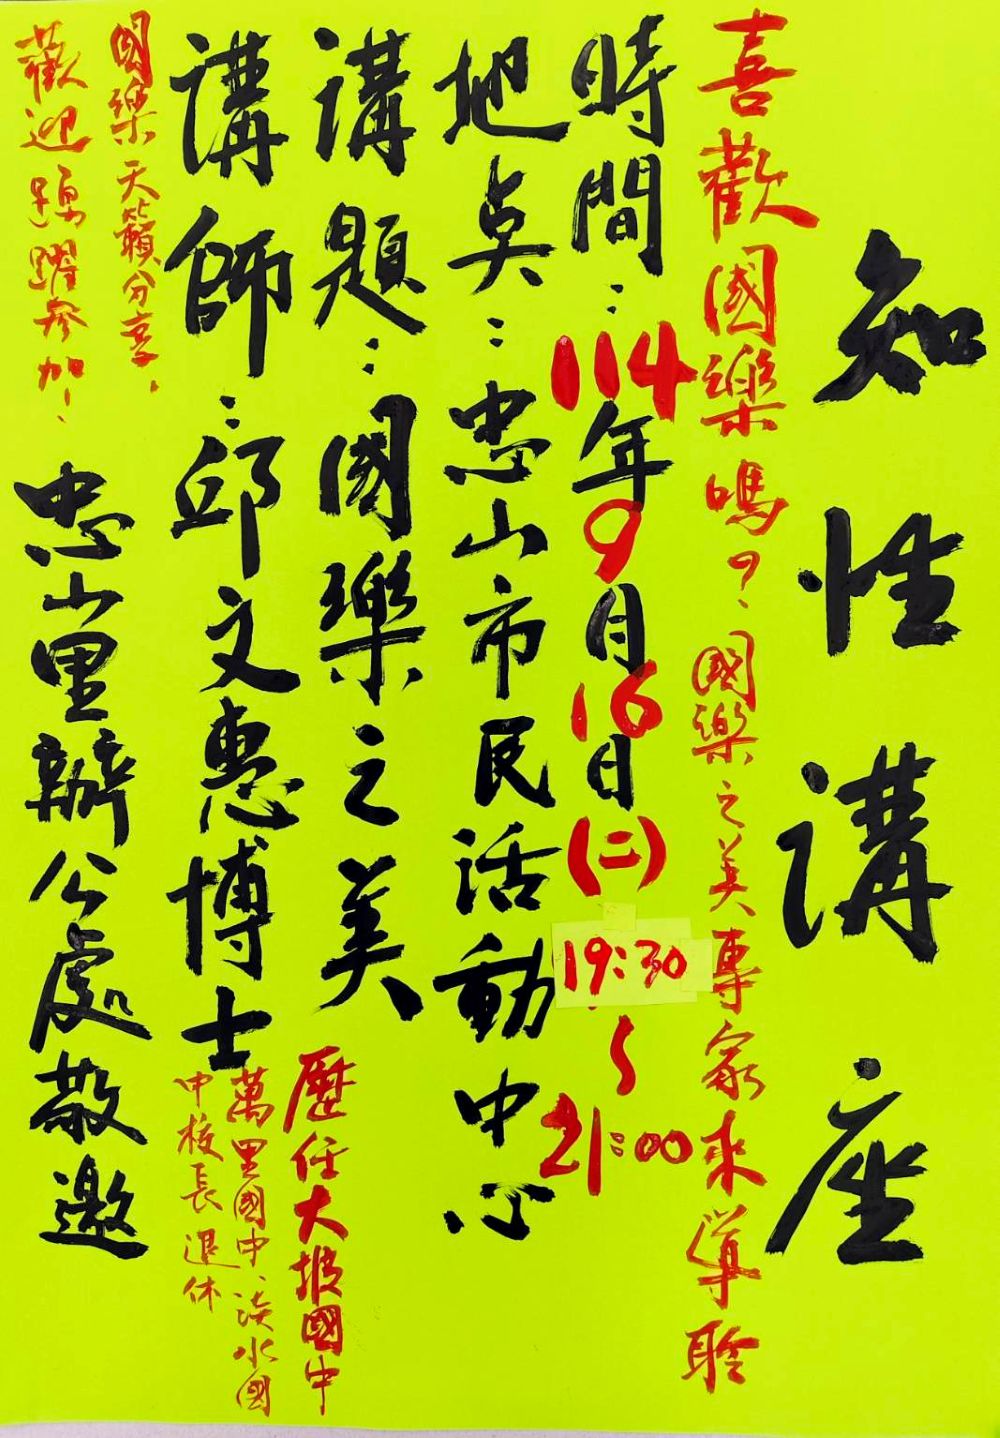 知性講座
喜歡國樂嗎？、國樂之美專家來導聆
時間：114年9月16日(二)19:30~21:00
地点：忠山市民活動中心
講題：國樂之美
歷任大坡國中
萬里國中、淡水國
中校長退休
講師：邱文惠博士
國樂天籟分享、
歡迎踴躍參加！、
忠山里辦公處敬邀